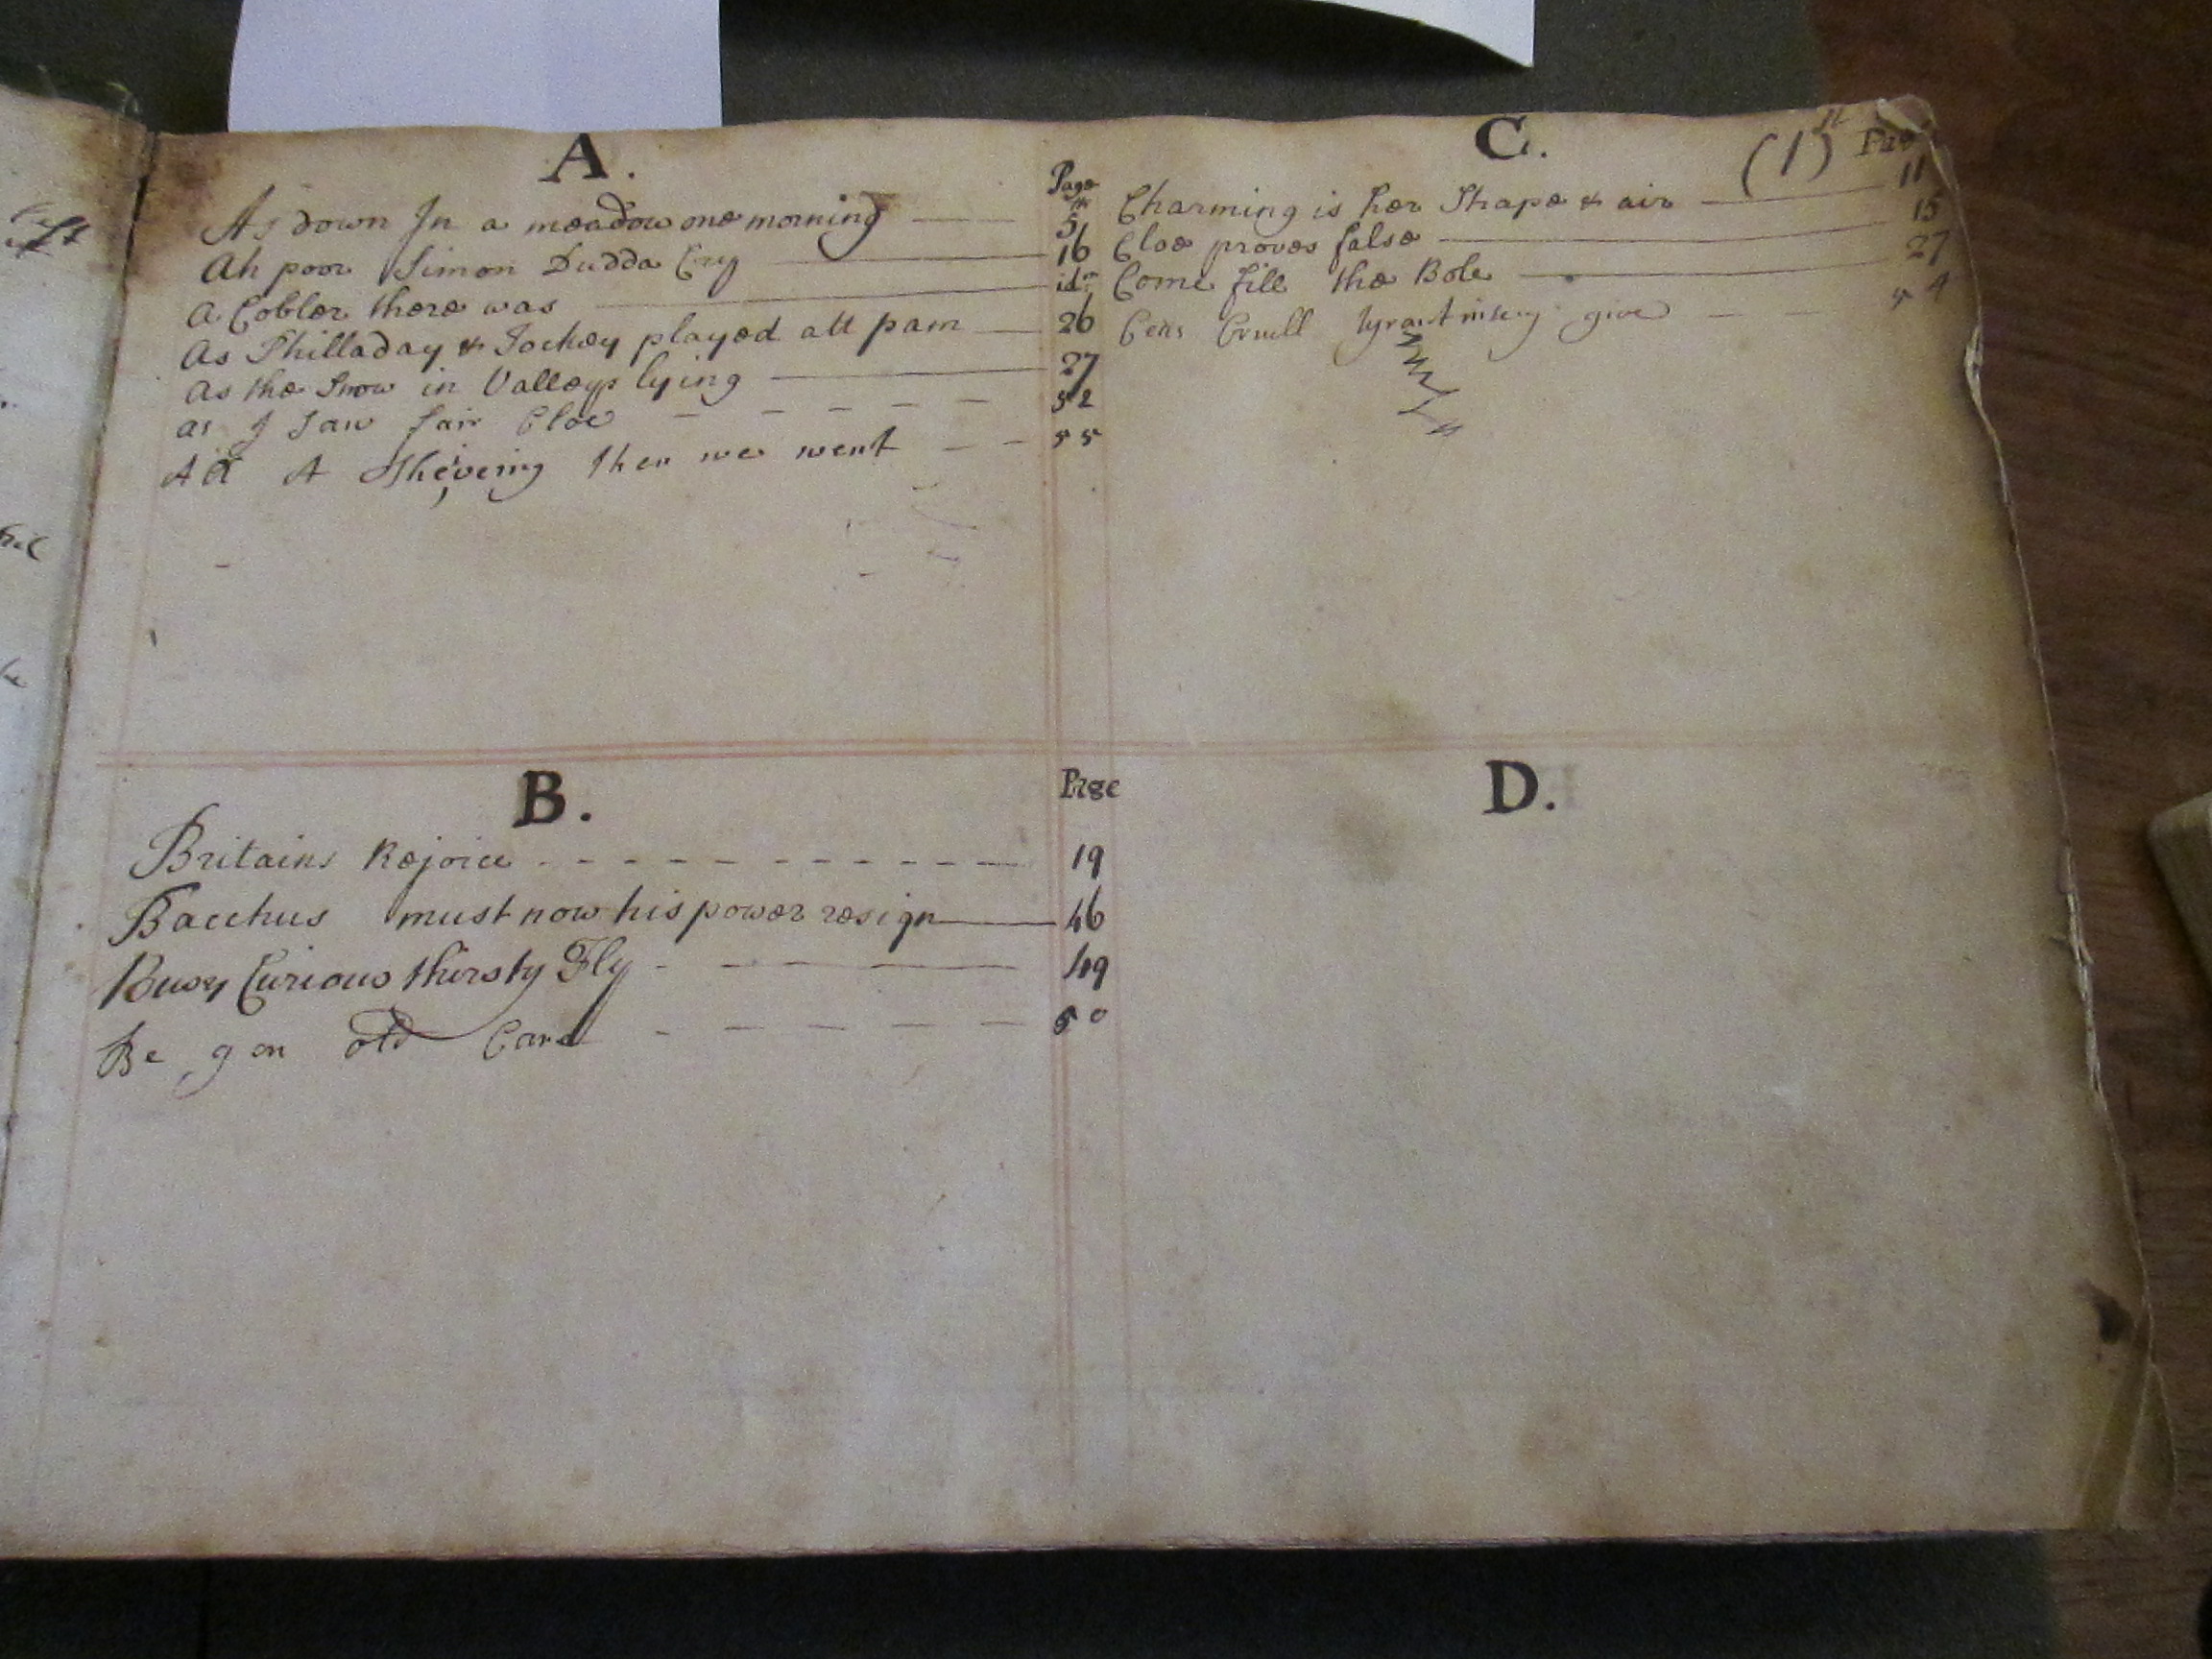 A.
Page
As down In a meadow one morning 5
Ah poor Simon Dudda Cry 16
A Cobler there was id:m
As Philladay & Jockey played att pam 26
As the Snow in Valleys lying 27
as I Saw fair Cloe - - - - - 52
A then we went - - 55
C.
(1) Page
Charming is her Shape & air 11
Cloe proves false 15
Come fill the Bole 27
Cruell tyrant give - - 54
B.
Page
Britains Rejoice - - - - - - - - - - - 19
Bacchus must now his power resign 46
Busy Curious thirsty Fly - - - 49
Be gon old Care - - - - - 50
D.